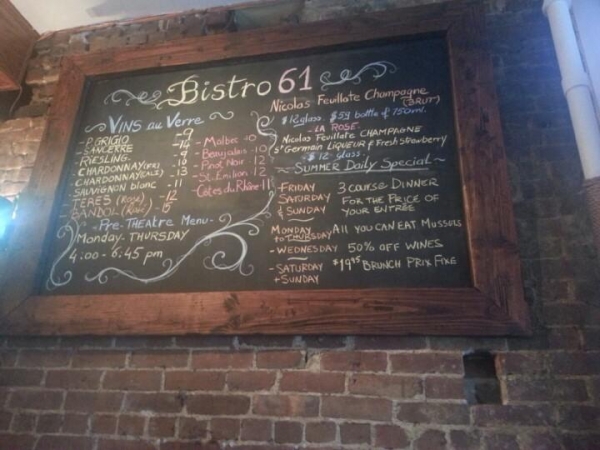 Bistro 61
VINS au VERRE
- P. GRIGIO - 9
- SANCERRE - 14
- RIESLING - 9
- CHARDONNAY
- CHARDONNAY - 13
- SAUVIGNON blanc - 11
- TERES (Rosé) - 12
- BANDOL (Rosé) - 15
- Malbec - 10
- Beaujolais - 10
- Pinot Noir 12
- St-Emilion 12
- Côtes du Rhône 11
~ Pre-THEATRE MENU -
Monday - THURSDAY
4:00 - 6:45 pm
Nicolas Feuillate Champagne
(BRUT)
$12 glass - $59 bottle of 750ml.
- LA ROSE -
Nicolas Feuillate CHAMPAGNE
St Germain LIQUEUR & FRESH Strawberry
- $12 - glass -
~ SUMMER DAILY SPECIAL ~
- FRIDAY
SATURDAY
& SUNDAY
3 COURSE DINNER
FOR THE PRICE OF
YOUR ENTRÉE
MONDAY
to THURSDAY
All YOU CAN EAT MUSSULS
- WEDNESDAY 50% OFF WINES
- SATURDAY
+ SUNDAY
$19.95 BRUNCH PRIX FIXE